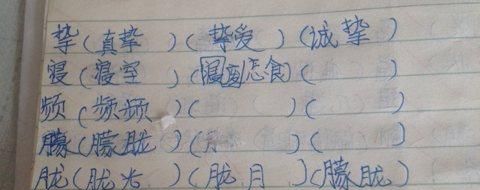 挚(真挚)(挚爱)(诚挚)
寝(寝室)(寝忘食)()
频(频频)()()
朦(朦胧)()()
胧(胧光)(胧月)(朦胧)